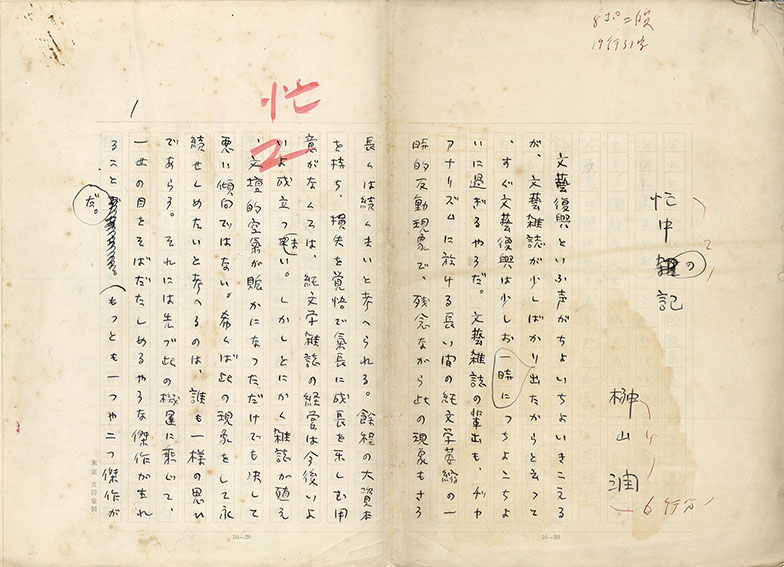 8ポ二段
19行31字
忙中の記
榊山潤
6行分
文藝復興といふ声がちよいちよいきこえる
が、文藝雑誌が少しばかり出たからと云つて
、すぐ文藝復興は少しお一時につちよこちよ
いに過ぎるやうだ。文藝雑誌の輩出も、ヂャ
アナリズムに於ける長い間の純文学萎縮の一
時的反動現象で、残念ながら此の現象もさう
忙
2
1
長くは続くまいと考へられる。餘程の大資本
を持ち、損失を覚悟で氣長に成長を楽しむ用
意がなくては、純文学雑誌の経営は今後いよ
いよ成立つまい。しかしとにかく雑誌が殖え
、文壇的空氣が賑かになつただけでも決して
悪い傾向ではない。希くば此の現象をして永
続せしめたいと考へるのは、誰も一様の思ひ
であらう。それには先づ此の機運に乗じて、
一世の目をそばだたしめるやうな傑作が生れ
ることだ。(もつとも一つや二つ傑作が
東京 文房堂製
10—20
10—20